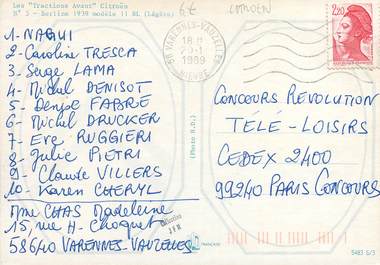 Les "Tractions Avant" Citroën
N° 3 - Berline 1939 modèle 11 BL (Légère)
6€
CITROEN
58 VARENNES-VAUZELLES
18 H
20-1
1989
NIEVRE
2,20
1- NAGUI
2- Caroline TRESCA
3- Serge LAMA
4- Michel DENISOT
5- Denise FABRE
6- Michel DRUCKER
7- Eve RUGGIERI
8- Julie PIETRI
9- Claude VILLERS
10- Karen CHERYL
Mme CHAS Madeleine
15, rue H- Choquet
58640 VARENNES-VAUZELLES
(Photo R.D.)
CONCOURS REVOLUTION
TÉLÉ-LOISIRS
CEDEX 2400
99240 PARIS CONCOURS
FRANÇAISE
5483 S/3